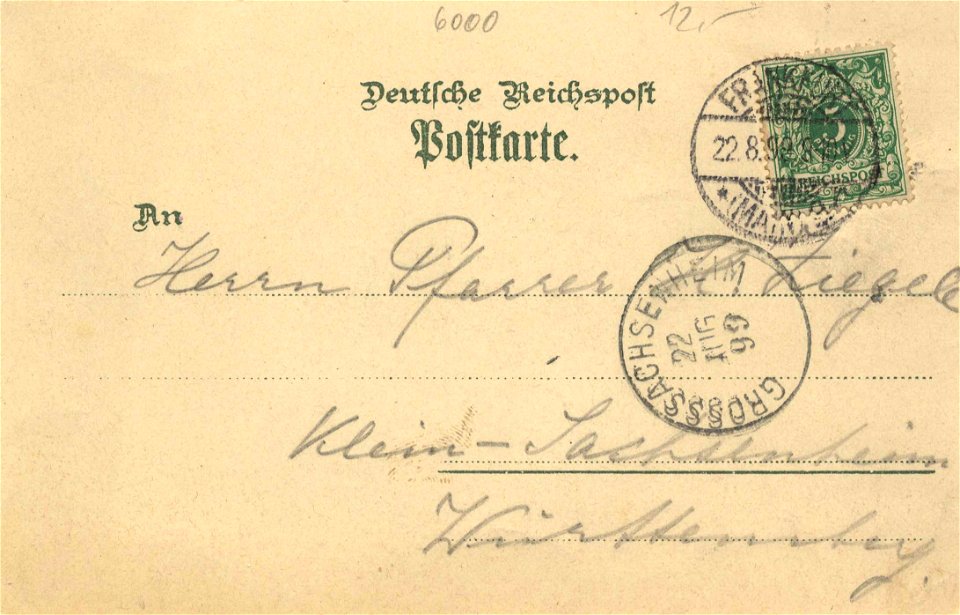 6000 12.-
Deutsche Reichspost
Postkarte.
FRANKFURT
22.8.99 8
* (MAIN)
5
REICHSPOST
An
Herrn Pfarrer Ziegele
GROSSSACHSENHEIM
22
AUG
99
Klein-Sachsenheim
Württemberg.